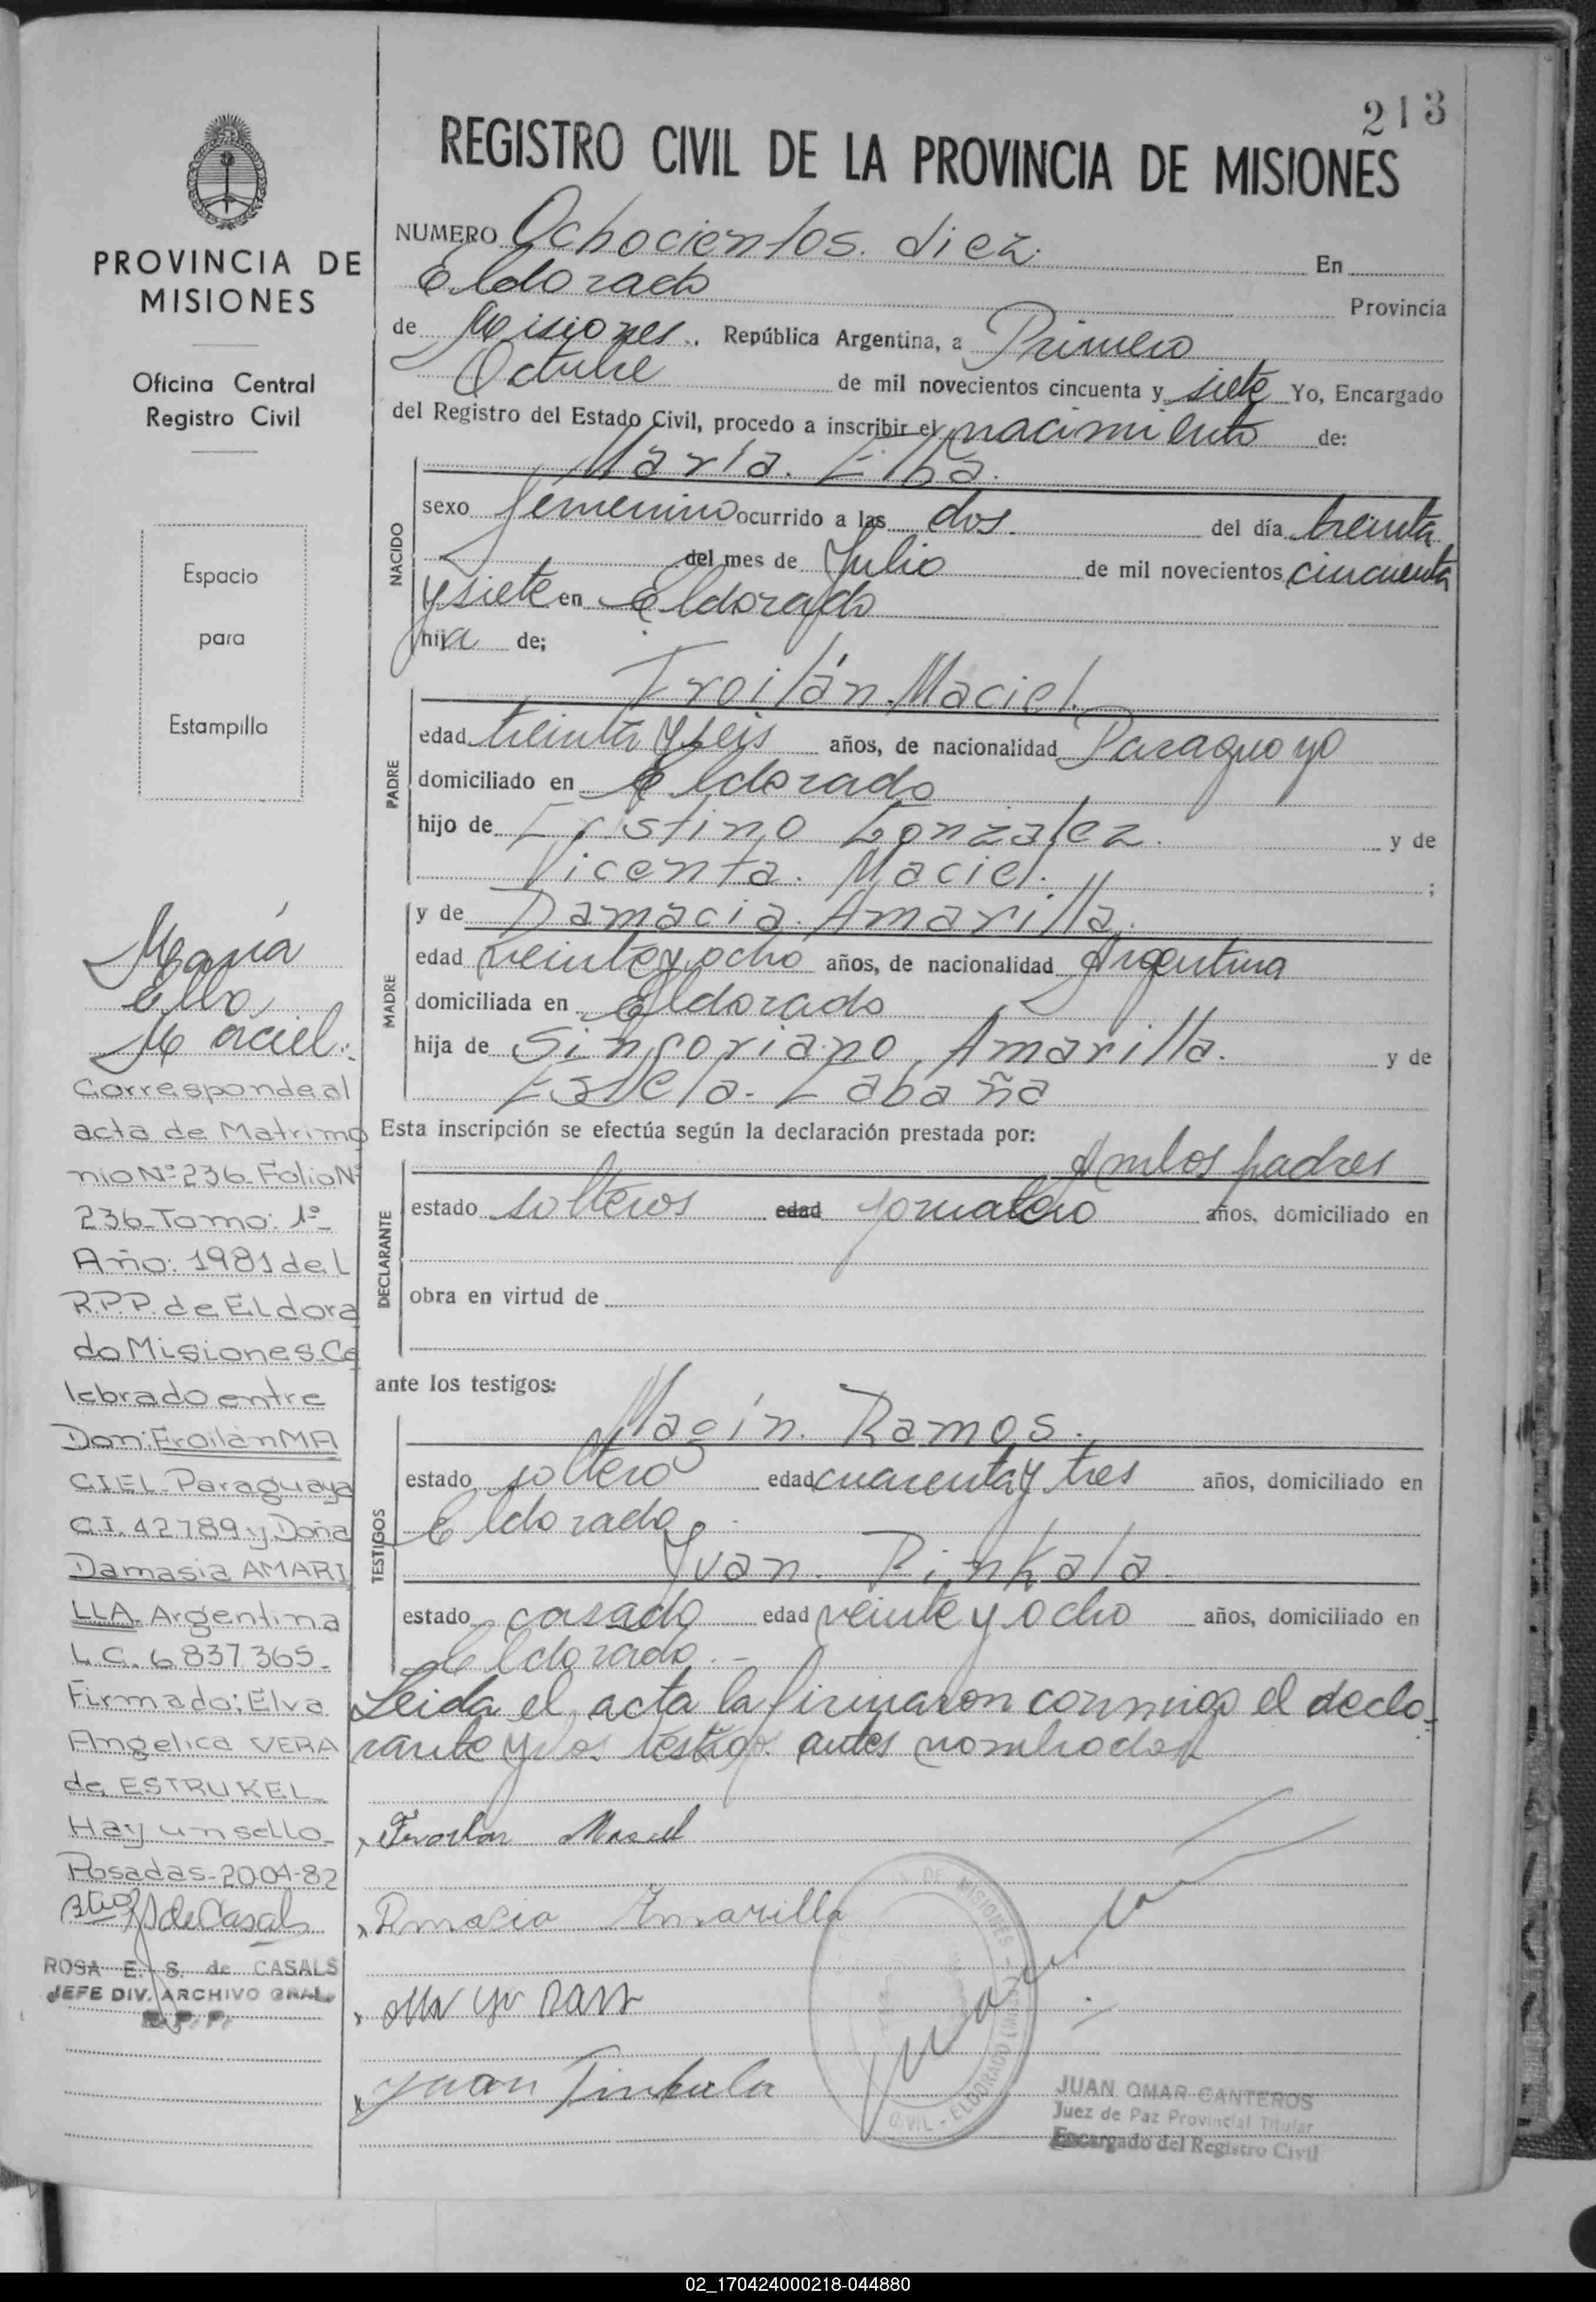 213
REGISTRO CIVIL DE LA PROVINCIA DE MISIONES
NUMERO Ochocientos. diez. En
Eldorado Provincia
de Misiones, República Argentina, a Primero
Octubre de mil novecientos cincuenta y siete Yo, Encargado
del Registro del Estado Civil, procedo a inscribir el nacimiento de:
María. Elba.
NACIDO
sexo femenino ocurrido a las dos. del día treinta
del mes de Julio de mil novecientos cincuenta
y siete en Eldorado
hija de;
Froilán. Maciel.
PADRE
edad treinta y seis años, de nacionalidad Paraguayo
domiciliado en Eldorado
hijo de González. y de
Vicenta. Maciel. ;
MADRE
y de Damacia. Amarilla.
edad veinte y ocho años, de nacionalidad Argentina
domiciliada en Eldorado
hija de Sinforiano. Amarilla. y de
Cabaña
Esta inscripción se efectúa según la declaración prestada por:
Ambos padres
DECLARANTE
estado solteros edad jornalero años, domiciliado en
obra en virtud de
ante los testigos:
Magín. Ramos.
TESTIGOS
estado soltero edad cuarenta y tres años, domiciliado en
Eldorado.
Yvan. Pinkala.
estado casado edad veinte y ocho años, domiciliado en
Eldorado. -
Leida el acta la firmaron conmigo el decla-
rante y los testigos antes nombrados
x Froilan Maciel
x Amarilla
x
x Pinkala
DE MISIONES
CIVIL - ELDORADO
JUAN OMAR CANTEROS
Juez de Paz Provincial Titular
Encargado del Registro Civil
PROVINCIA DE
MISIONES
Oficina Central
Registro Civil
Espacio
para
Estampilla
María
Elba
Maciel.
Corresponde al
acta de Matrimo
nio Nº 236. Folio Nº
236-Tomo: 1º-
Año: 1981 del
R.P.P. de Eldora
do Misiones. Ce
lebrado entre
Don: Froilán MA
CIEL-Paraguaya
C.I. 42789 y Doña
Damasia AMARI
LLA. Argentina
L.C. 6837365-
Firmado: Elva
Angelica VERA
de ESTRUKEL-
Hay un sello-
Posadas-20-04-82
de Casals
ROSA E. S. de CASALS
JEFE DIV. ARCHIVO GRAL.
R. P. P.
02_170424000218-044880